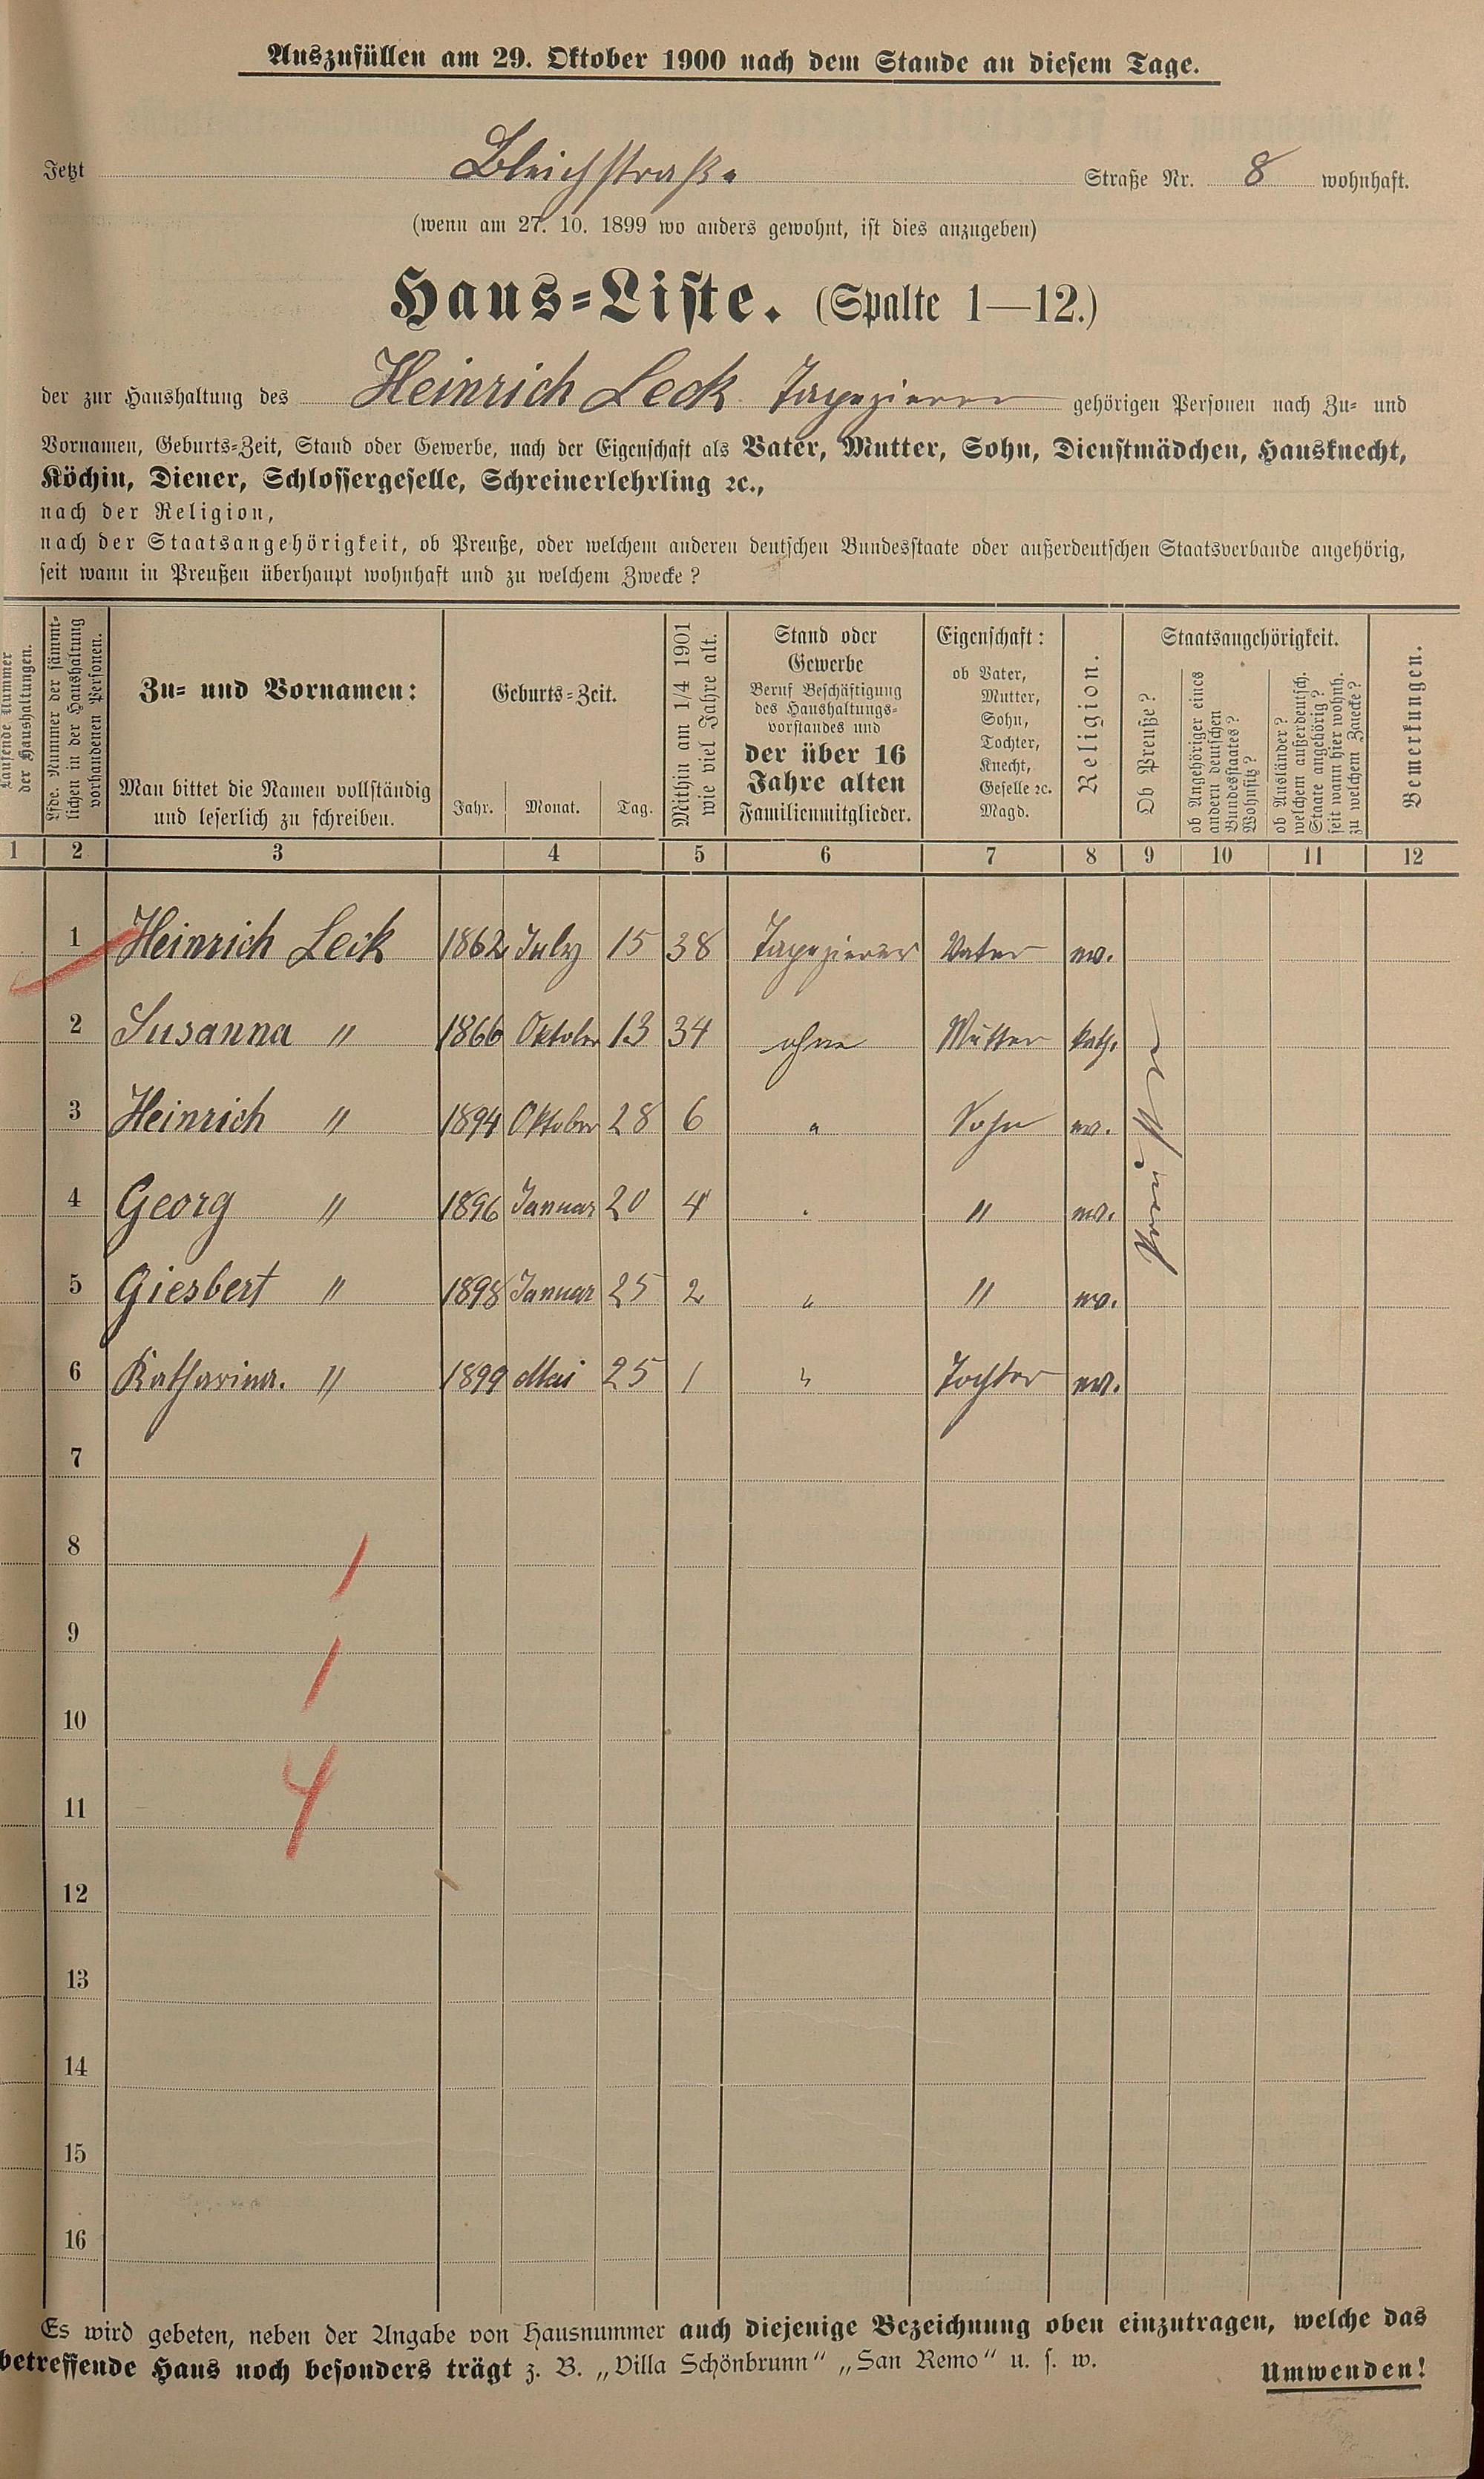 Auszufüllen am 29. Oktober 1900 nach dem Stande an diesem Tage.
Jetzt Bleichstraße Straße Nr. 8 wohnhaft.
(wenn am 27. 10. 1899 wo anders gewohnt, ist dies anzugeben)
Haus-Liste. (Spalte 1—12.)
der zur Haushaltung des Heinrich Leck Tapezierer gehörigen Personen nach Zu- und
Vornamen, Geburts-Zeit, Stand oder Gewerbe, nach der Eigenschaft als Vater, Mutter, Sohn, Dienstmädchen, Hausknecht,
Köchin, Diener, Schlossergeselle, Schreinerlehrling ꝛc.,
nach der Religion,
nach der Staatsangehörigkeit, ob Preuße, oder welchem anderen deutschen Bundesstaate oder außerdeutschen Staatsverbande angehörig,
seit wann in Preußen überhaupt wohnhaft und zu welchem Zwecke?
Laufende Nummer
der Haushaltungen.
Lfde. Nummer der sämmt-
lichen in der Haushaltung
vorhandenen Personen.
Zu- und Vornamen:
Man bittet die Namen vollständig
und leserlich zu schreiben.
Geburts-Zeit.
Jahr. Monat. Tag.
Mithin am 1/4 1901
wie viel Jahre alt.
Stand oder
Gewerbe
Beruf Beschäftigung
des Haushaltungs-
vorstandes und
der über 16
Jahre alten
Familienmitglieder.
Eigenschaft:
ob Vater,
Mutter,
Sohn,
Tochter,
Knecht,
Geselle ꝛc.
Magd.
Religion.
Staatsangehörigkeit.
Ob Preuße?
ob Angehöriger eines
andern deutschen
Bundesstaates?
Wohnsitz?
ob Ausländer?
welchem außerdeutsch.
Staate angehörig?
seit wann hier wohnh.
zu welchem Zwecke?
Bemerkungen.
1 2 3 4 5 6 7 8 9 10 11 12
1 Heinrich Leck 1862 July 15 38 Tapezierer Vater ev.
2 Susanna " 1866 Oktober 13 34 ohne Mutter kath.
3 Heinrich " 1894 Oktober 28 6 " Sohn ev.
4 Georg " 1896 Januar 20 4 " " ev.
5 Giesbert " 1898 Januar 25 2 " " ev.
6 Katharina. " 1899 Mai 25 1 " Tochter ev.
7
8
1
9
1
10
4
11
12
13
14
15
16
Es wird gebeten, neben der Angabe von Hausnummer auch diejenige Bezeichnung oben einzutragen, welche das
betreffende Haus noch besonders trägt z. B. „Villa Schönbrunn" „San Remo" u. s. w.
Umwenden!